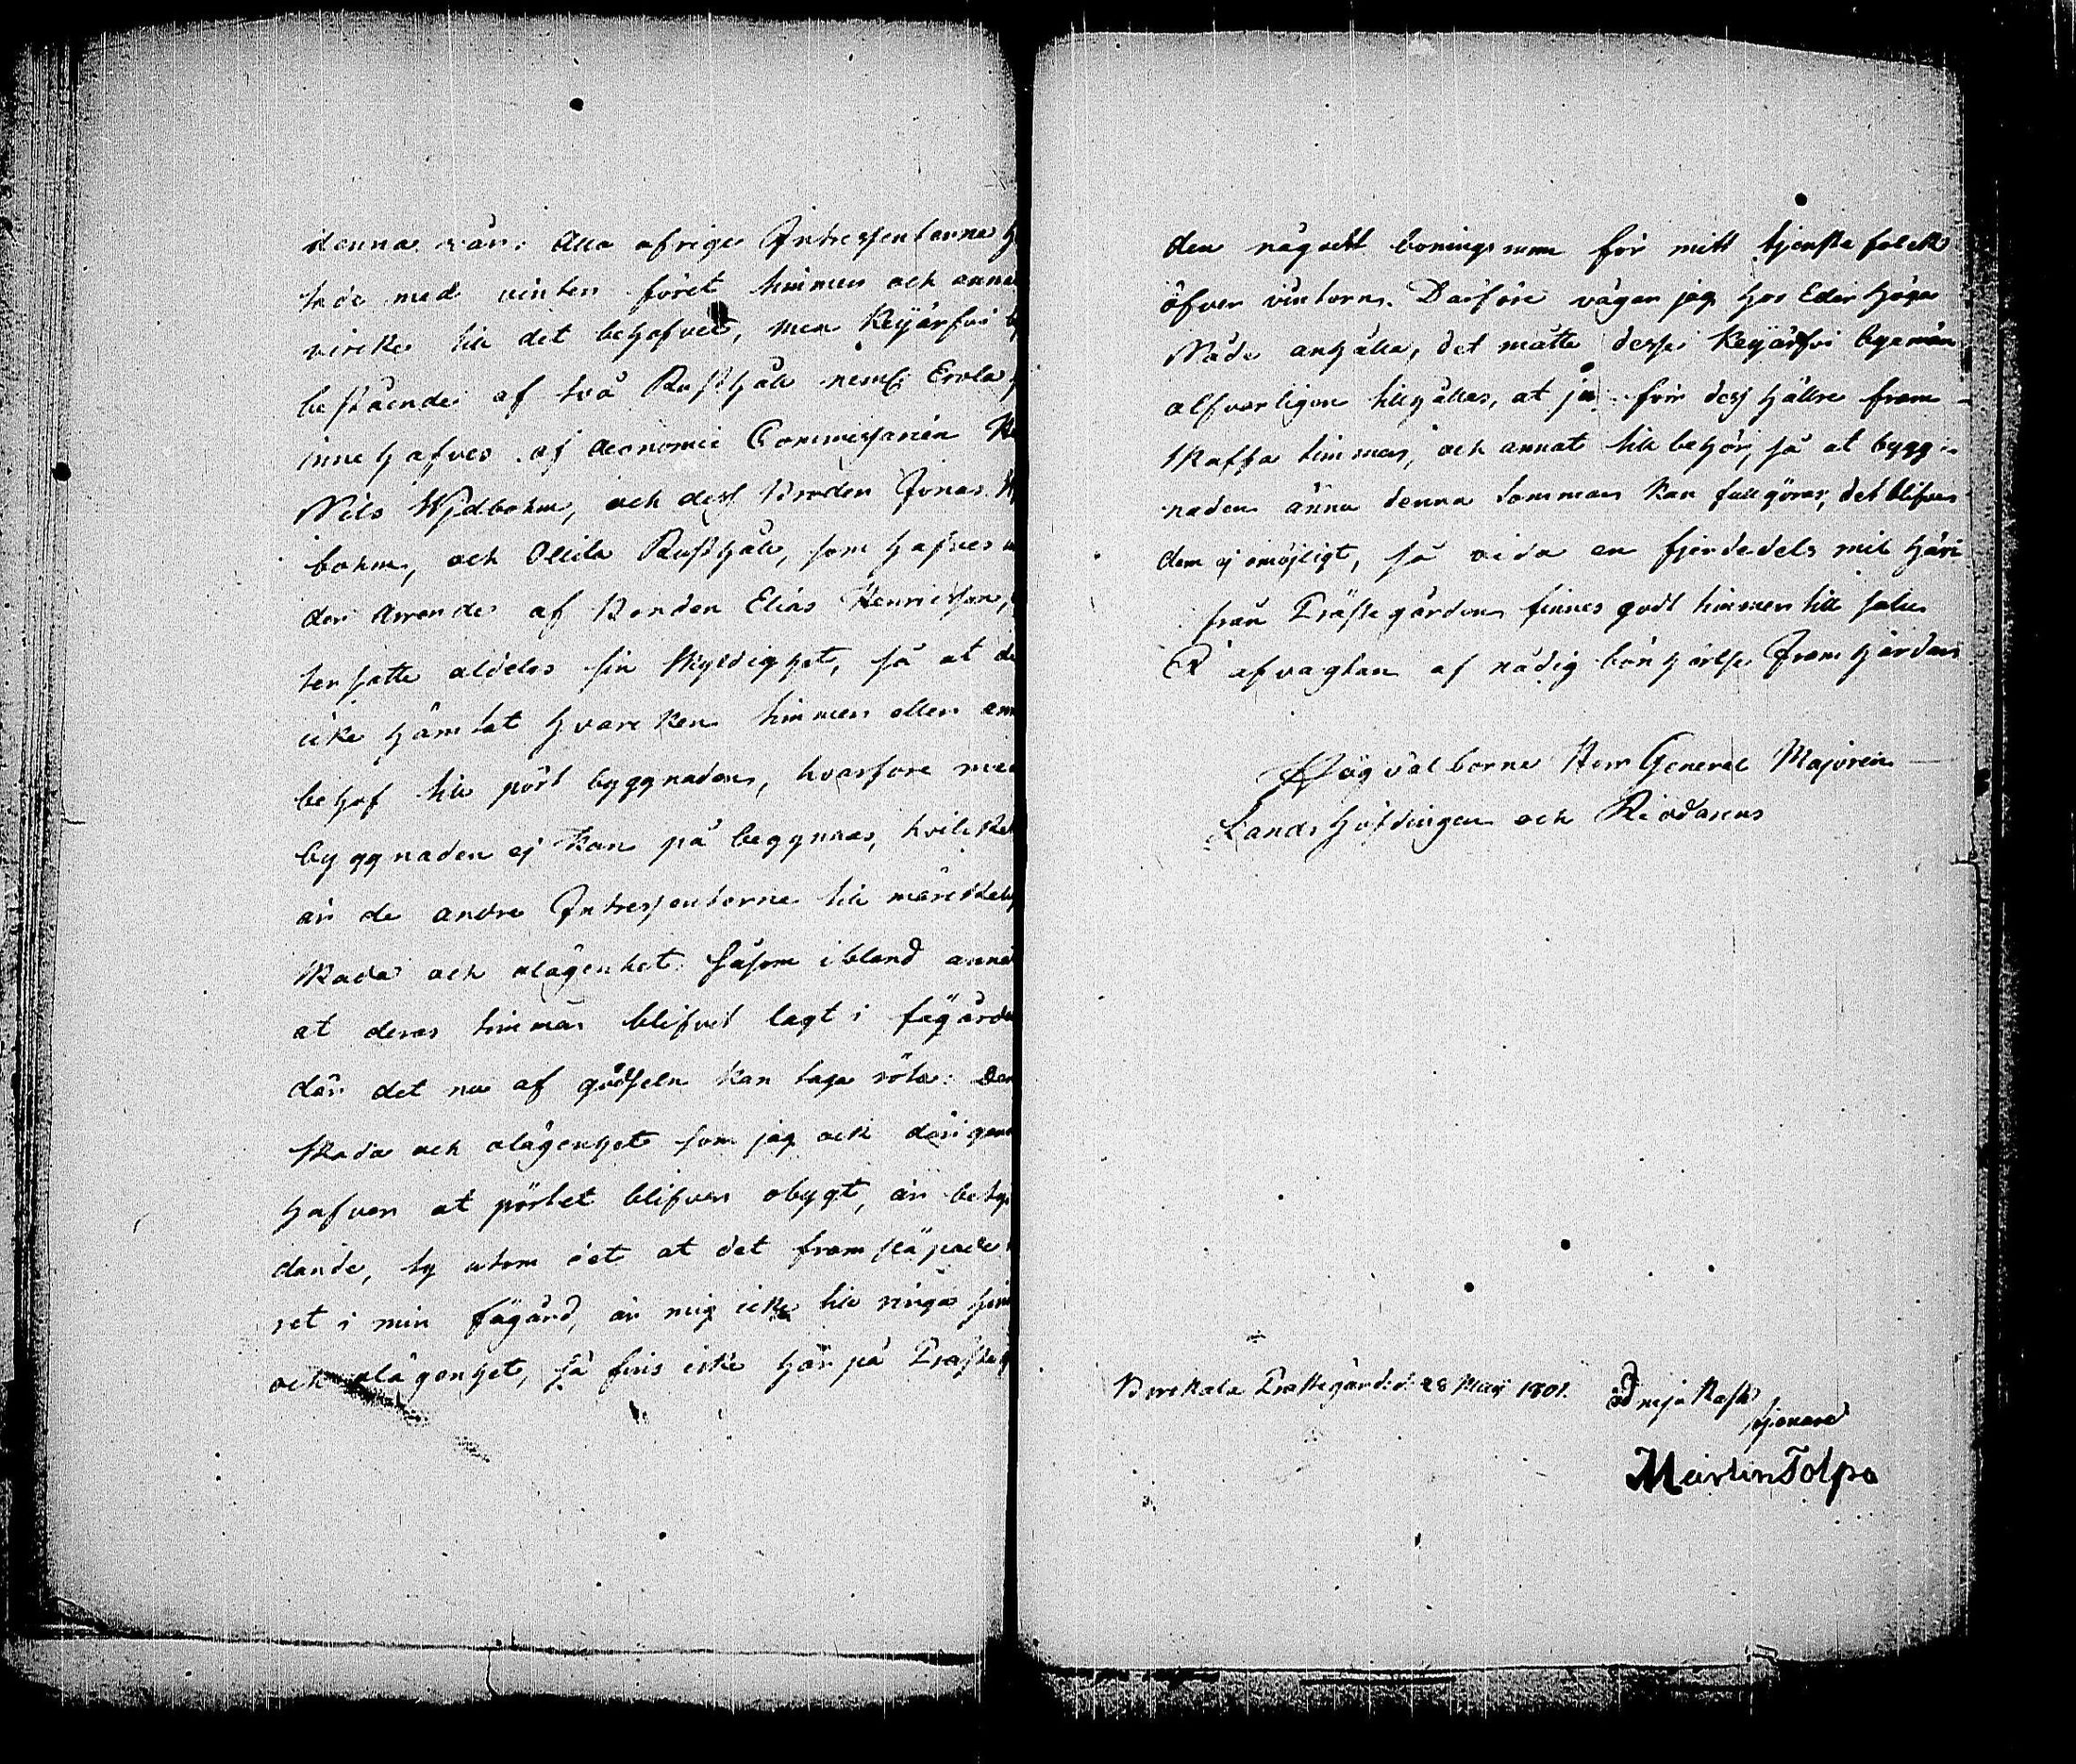 denna vår. Alla öfrige Intressenterne h
fade med vinter föret timmer och anna
vircke till det behofvet, men Keijärfvi b
bestående af två Rusthåll neml: Erola
innehafves af Oeconomie Commissarien
Nils Widbohm, och dess Broder Jonas W
bohm, och Ollila Rusthåll, som hafves u
der Arrende af Bonden Elias Henricsson,
tersatte aldeles sin skyldighet, så at de
icke hämtat hvarcken timmer eller ann
behof till pört byggnaden, hvarföre med
byggnaden ej kan på beggynnas, hvilcket
är de andre Intressenterne till märckelig
skada och olägenhet. Såsom ibland anna
at deras timmer blifvit lagt i fägården
där det nu af gödseln kan taga röta: Den
skada och olägenhet som jag ock därigenom
hafver at pörtet blifver obygt, är bety
dande, ty utom det at det fram släpade
ret i min fägård, är mig icke till ringa hin
och olägenhet, så fins icke här på Prästeg
den någodt boningsrum för mitt tjenstefolck
öfver vintern. Därföre vågar jag hos Eder Höga
Nåde anhålla, det måtte desse Keijärfvi byamän
alfvarligen tillhållas, at ju förr dess hällre fram-
skaffa timmer, och annat till behör, så at bygg-
naden ännu denna sommar kan fullgöras, det blifver
dem ej omöjligt, så vida en fjerdedels mil häri
från Prästegården finnes godt timmer till salu.
I afvagtan af nådig bönhörelse Framhärdar
Högvälborne Herr General Majoren
Landshöfdingen och Riddarens
Birckala Prästegård d. 28 Maji 1801.
ödmjukaste
tjenare
Martin Tolpo